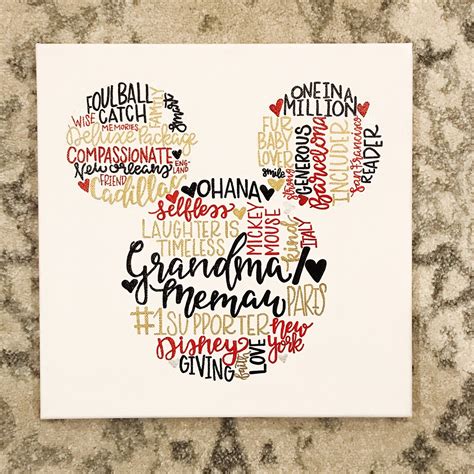 FOUL BALL
CATCH
FAMILY
smart
WISE
MEMORIES
Deluxe Package
COMPASSIONATE
New Orleans
ENG-
LAND
FRIEND
Cadillac
ONE IN A
MILLION
FUR
BABY
LOVER
smile
strong
GENEROUS
Barcelona
INCLUDER
San Francisco
READER
OHANA
selfless
LAUGHTER IS
TIMELESS
MICKEY
MOUSE
kind
ITALY
Grandma/
Memaw
PARIS
#1 SUPPORTER
new
york
Disney
GIVING
faith
LOVE